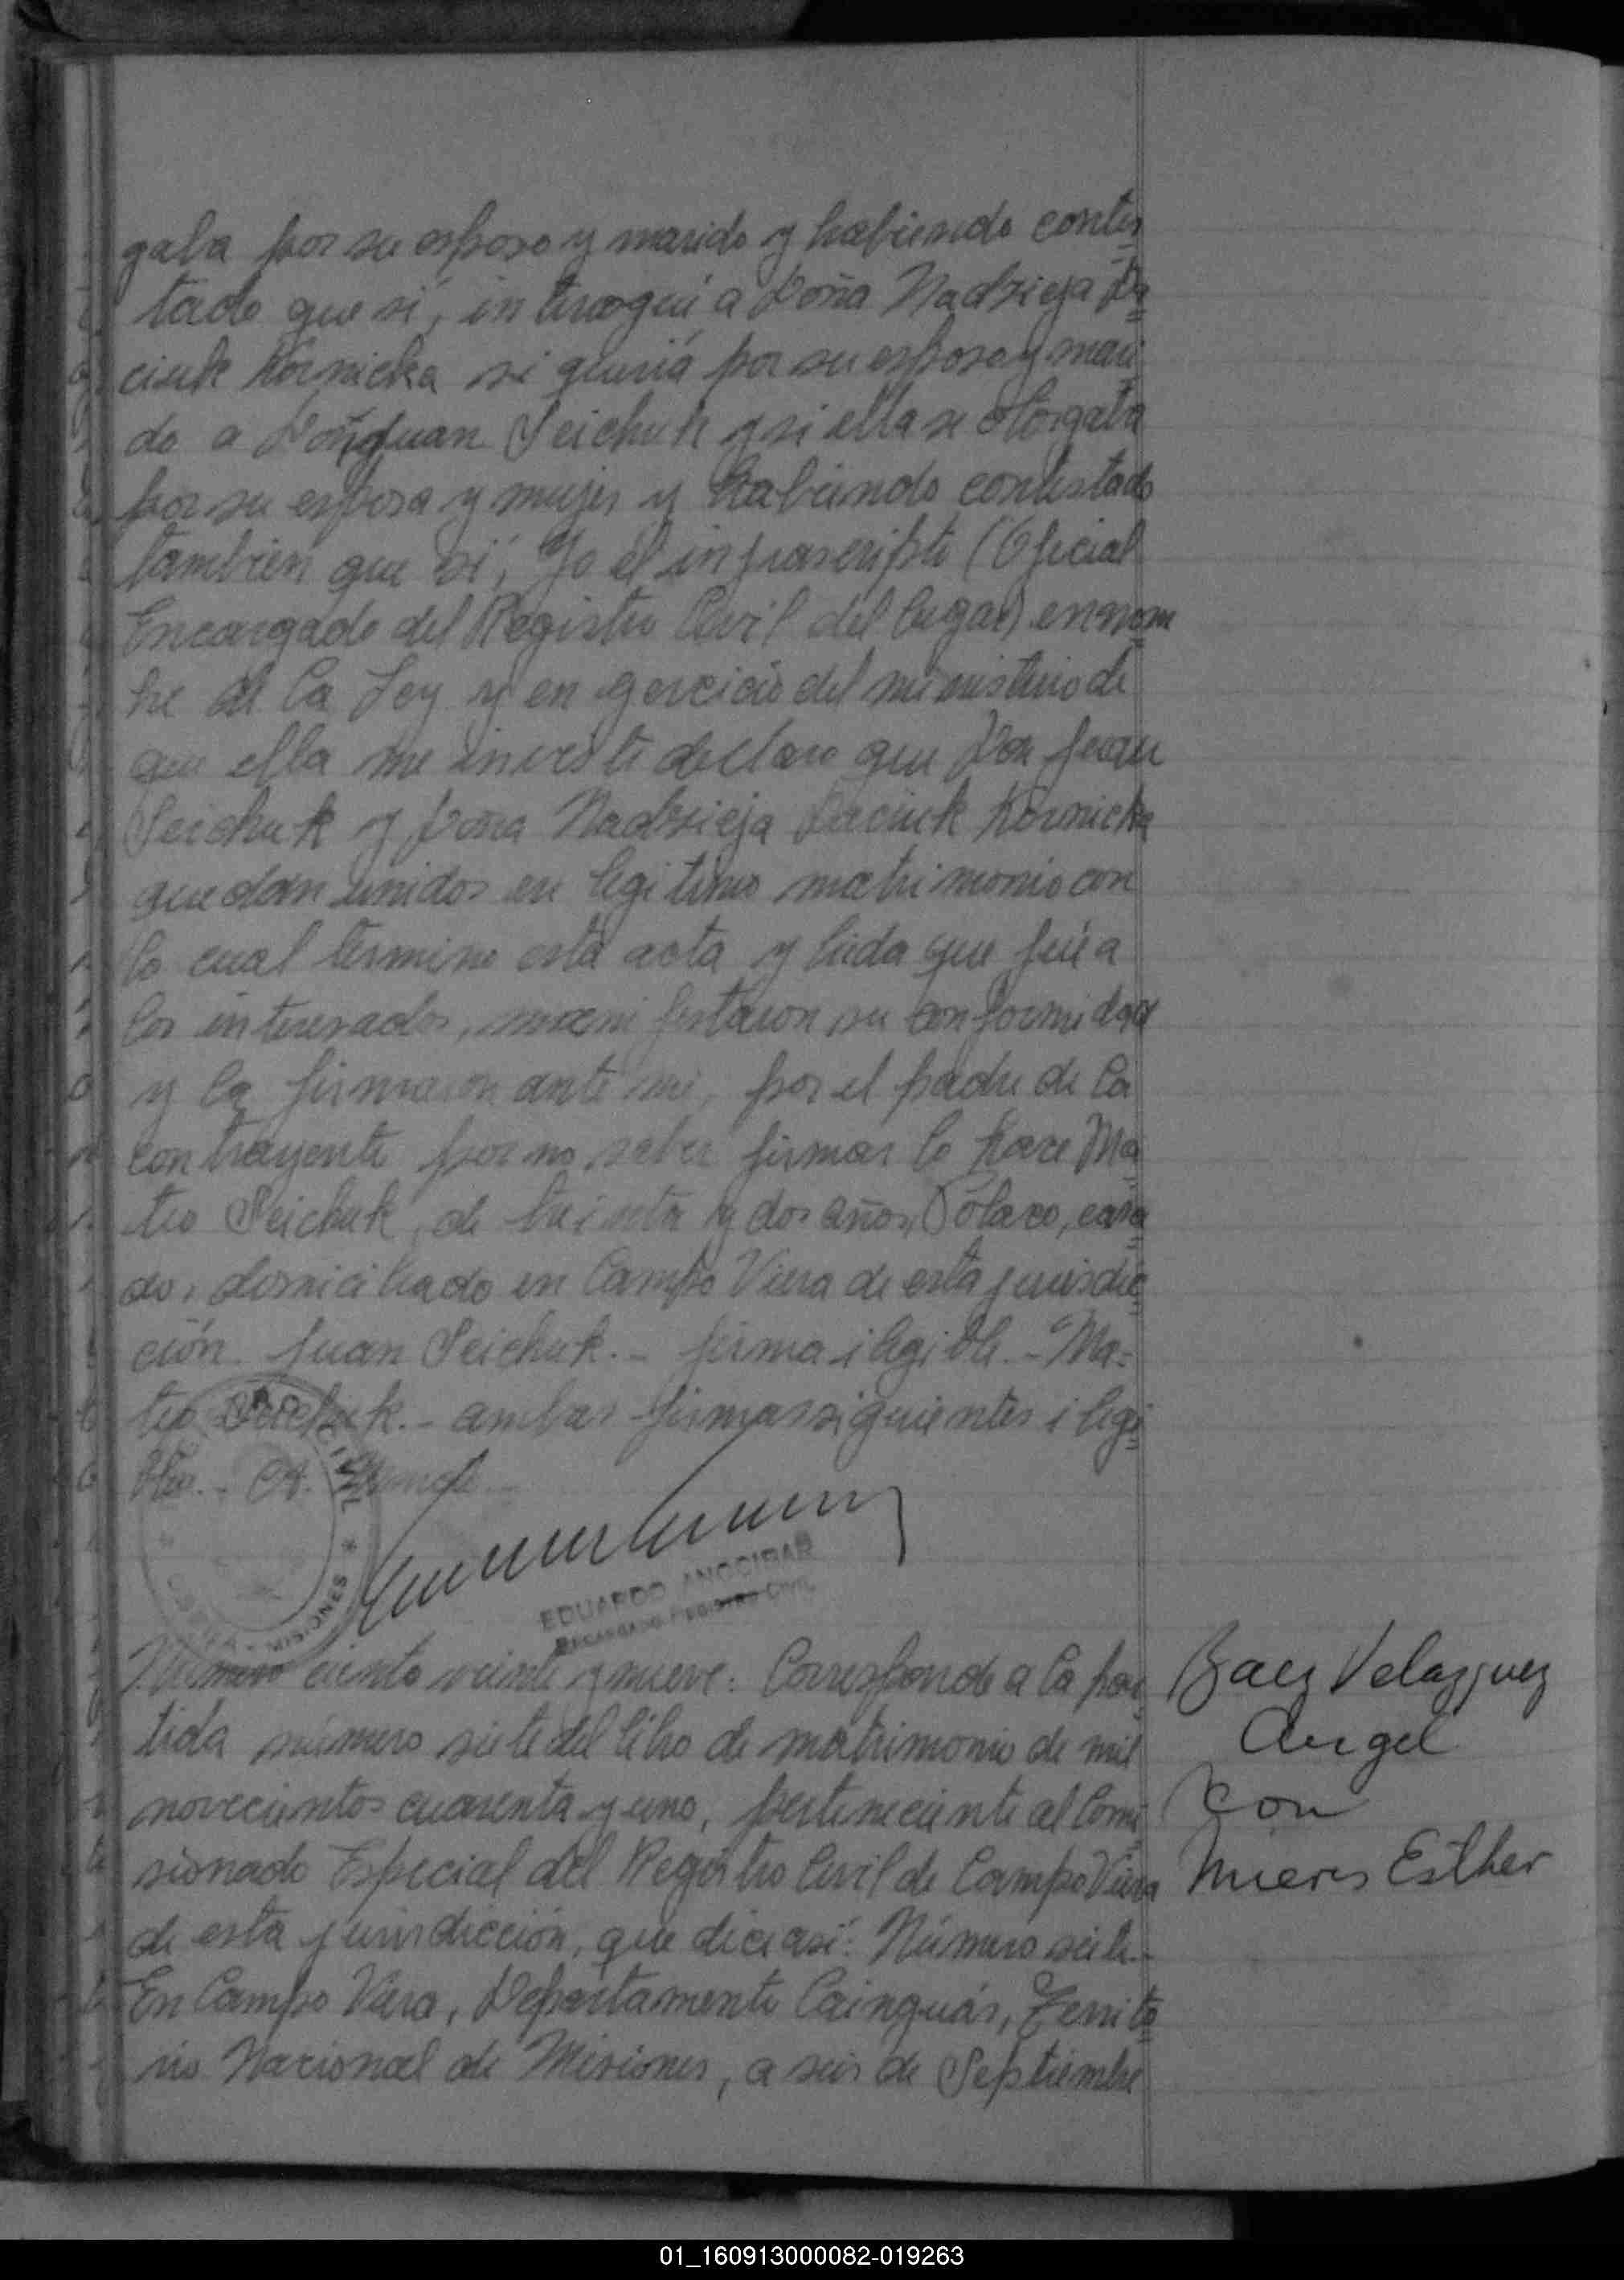 gaba por su esposo y marido y habiendo contes
tado que si, interrogué a Doña Nadzieja Da
ciuk Kornicka si quería por su esposo y mari
do a Don Juan Seichuk y si ella se otorgaba
por su esposa y mujer y habiendo contestado
tambien que si, Yo el infrascripto (Oficial
Encargado del Registro Civil del lugar) en nom
bre de la Ley y en ejercicio del ministerio de
que ella me inviste declaro que Don Juan
Seichuk y Doña Nadzieja Daciuk Kornicka
quedan unidos en legitimo matrimonio con
lo cual termino esta acta y leida que fué a
los interesados, manifestaron su conformidad
y la firmaron ante mi, por el padre de la
contrayente por no saber firmar lo hace Ma
teo Seichuk, de treinta y dos años, Polaco, casa
do, domiciliado en Campo Viera de esta jurisdic
ción. Juan Seichuk.- firma ilegible.- Ma=
teo Seichuk.- ambas firmas siguientes ilegi
bles.- A.
EDUARDO ANOCIBAR
ENCARGADO REGISTRO CIVIL
MISIONES
Número ciento veinte y nueve: Corresponde a la par
tida número siete del libro de matrimonio de mil
novecientos cuarenta y uno, perteneciente al Comi
sionado Especial del Registro Civil de Campo Viera
de esta jurisdicción, que dice asi: Número siete.-
En Campo Viera, Departamento Cainguás, Territo
rio Nacional de Misiones, a seis de Septiembre
Baez Velazquez
Angel
con
Mieres Esther
01_160913000082-019263